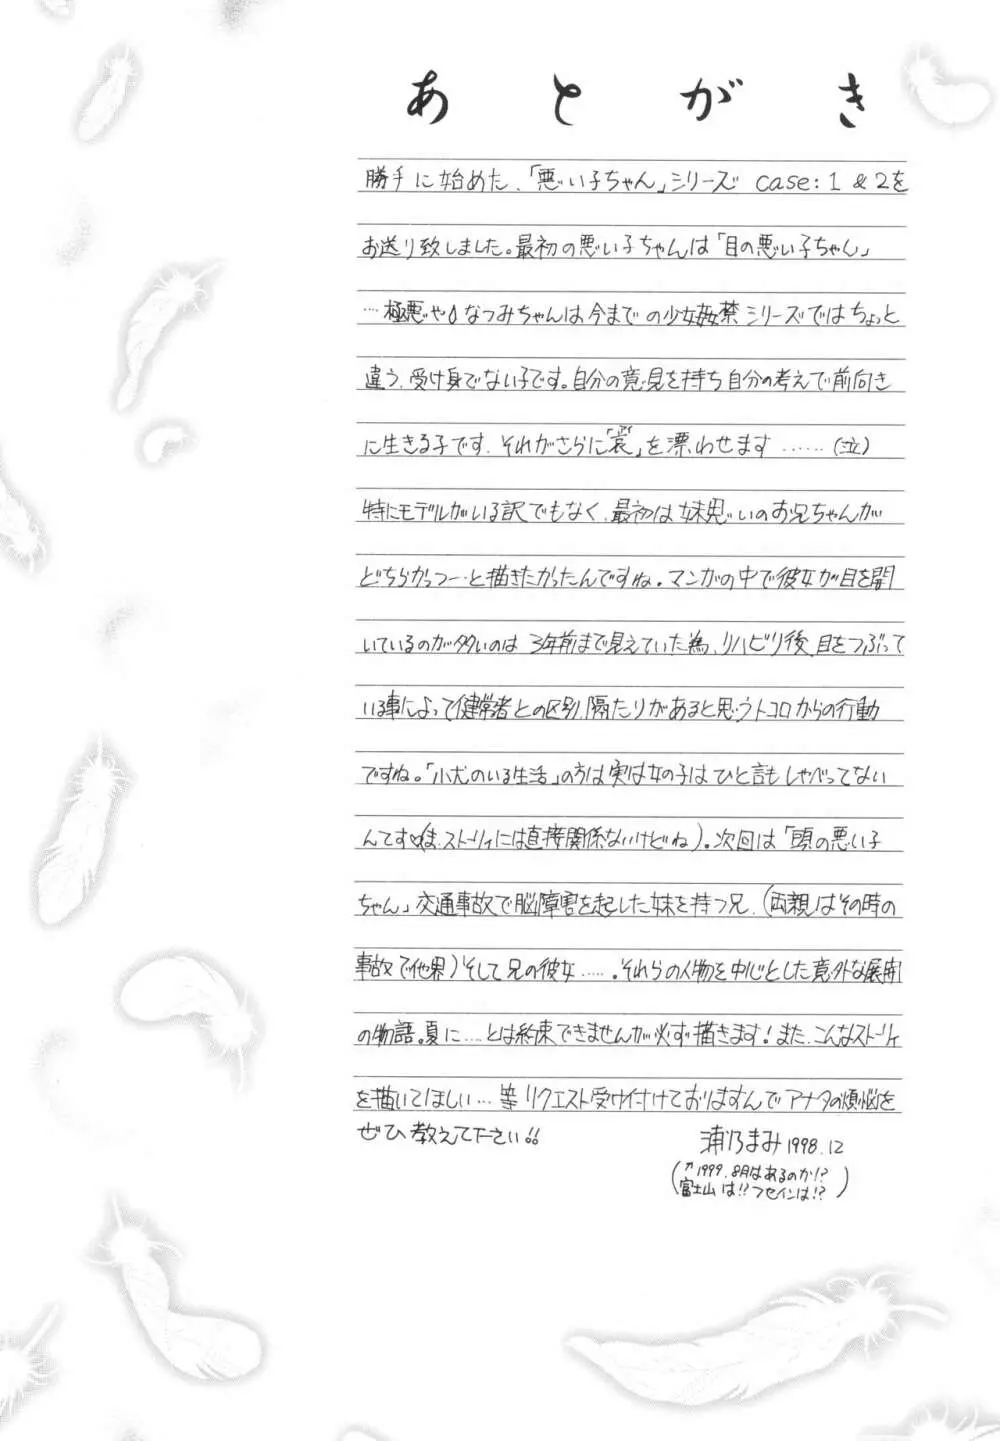 あとがき
勝手に始めた、「悪い子ちゃん」シリーズ case:1&2を
お送り致しました。最初の悪い子ちゃんは「目の悪い子ちゃん」
…極悪や なつみちゃんは今までの少女姦禁シリーズではちょっと
違う、受け身でない子です。自分の意見を持ち自分の考えで前向き
に生きる子です。それがさらに「哀」を漂わせます……(泣)
特にモデルがいる訳でもなく、最初は妹思いのお兄ちゃんが
どちらかっつー…と描きたかったんですね。マンガの中で彼女が目を開
いているのが多いのは 3年前まで見えていた為、リハビリ後、目をつぶって
いる事によって健常者との区別、隔たりがあると思うトコロからの行動
ですね。「小犬のいる生活」の方は実は女の子はひと言もしゃべってない
んです(ま、ストーリィには直接関係ないけどね)。次回は「頭の悪い子
ちゃん」交通事故で脳障害を起した妹を持つ兄、(両親はその時の
事故で他界)そして兄の彼女……。それらの人物を中心とした意外な展開
の物語。夏に……とは約束できませんが必ず描きます!また、こんなストーリィ
を描いてほしい…等リクエスト受け付けておりますんでアナタの煩悩を
ぜひ教えて下さい!!
浦乃まみ 1998.12
(↑1999.8月はあるのか!?
富士山は!!?フセインは!?)